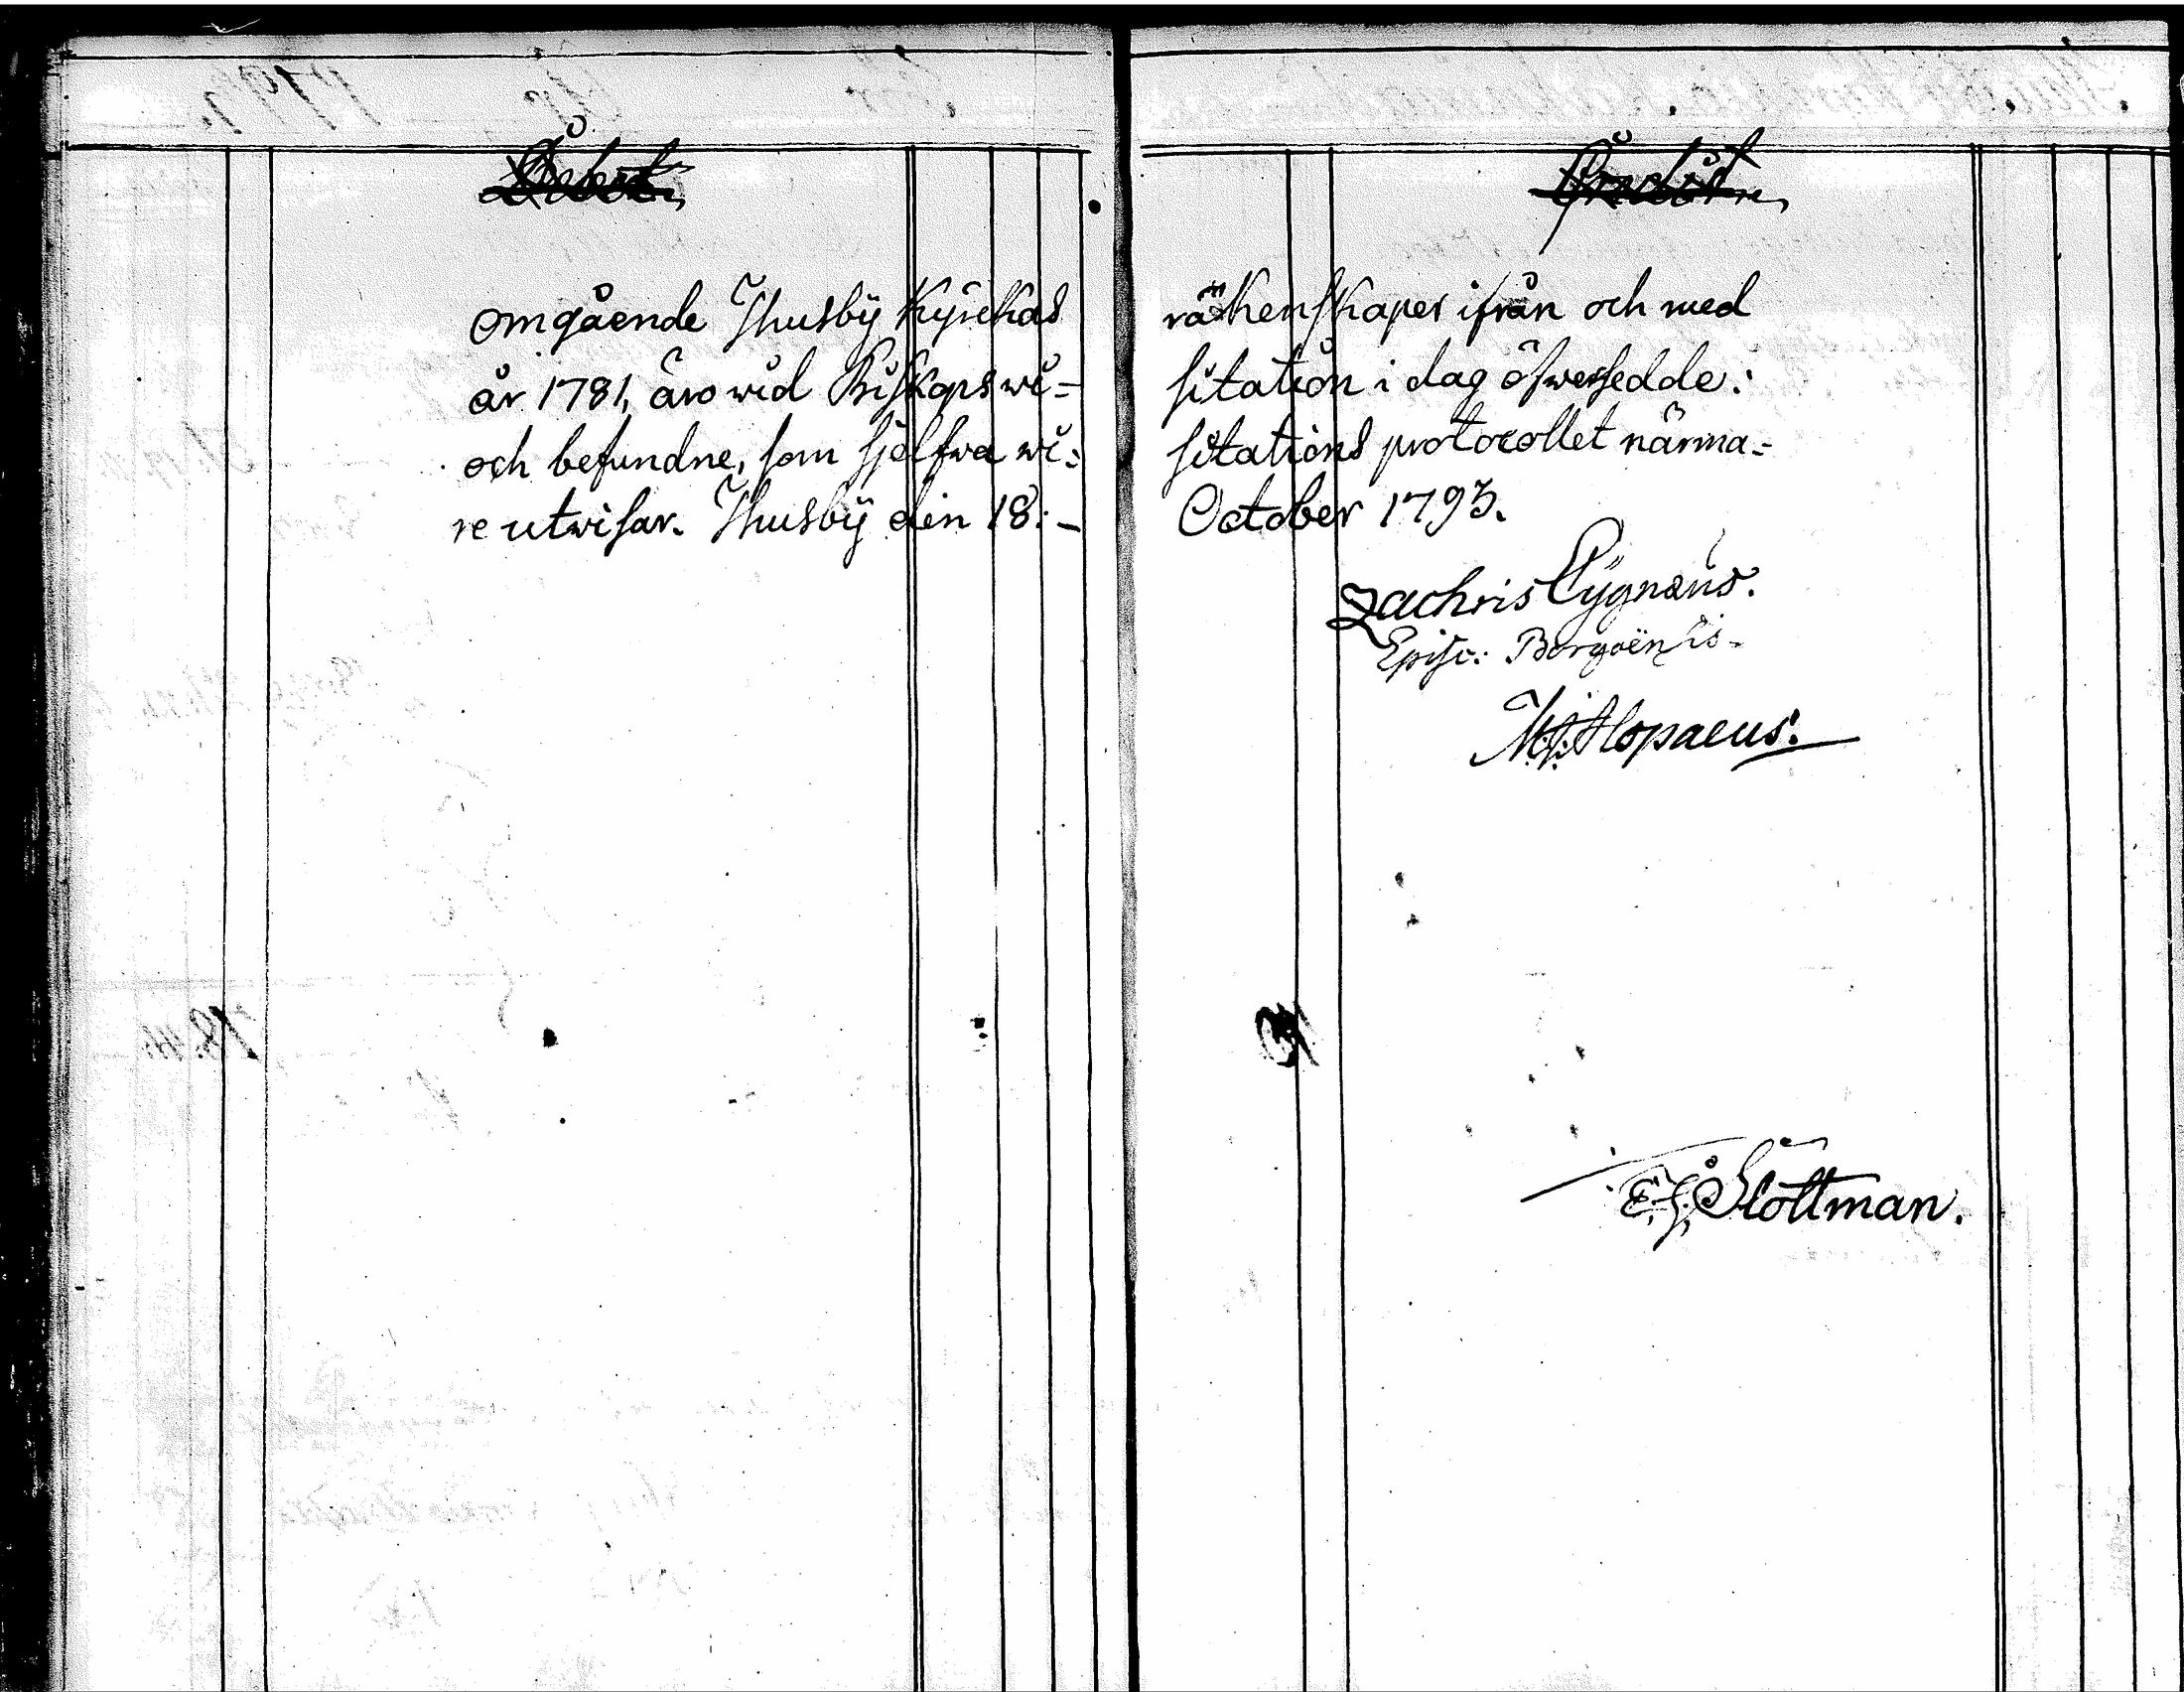 Debet Credit
Omgående Jhusby Kyrckas räkenskaper ifrån och med
år 1781, äro wid Biskops wi= sitation i dag öfwersedde:
och befundne, som sjelfwa wi= sitations protocollet närma=
re utwisar. Jhusby den 18:- October 1793.
Zachris Cygnæus.
Episc: Borgoënsis.
M:J: Alopaeus.
E. J. Slottman.